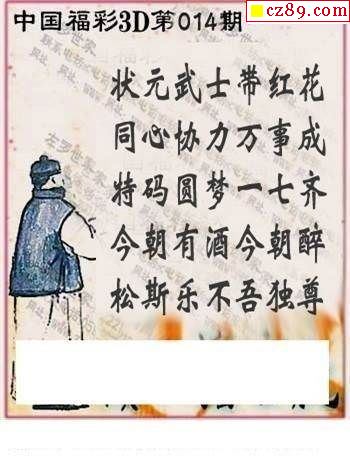 cz89.com
中国福彩3D第014期
状元武士带红花
同心协力万事成
特码圆梦一七齐
今朝有酒今朝醉
松斯乐不吾独尊